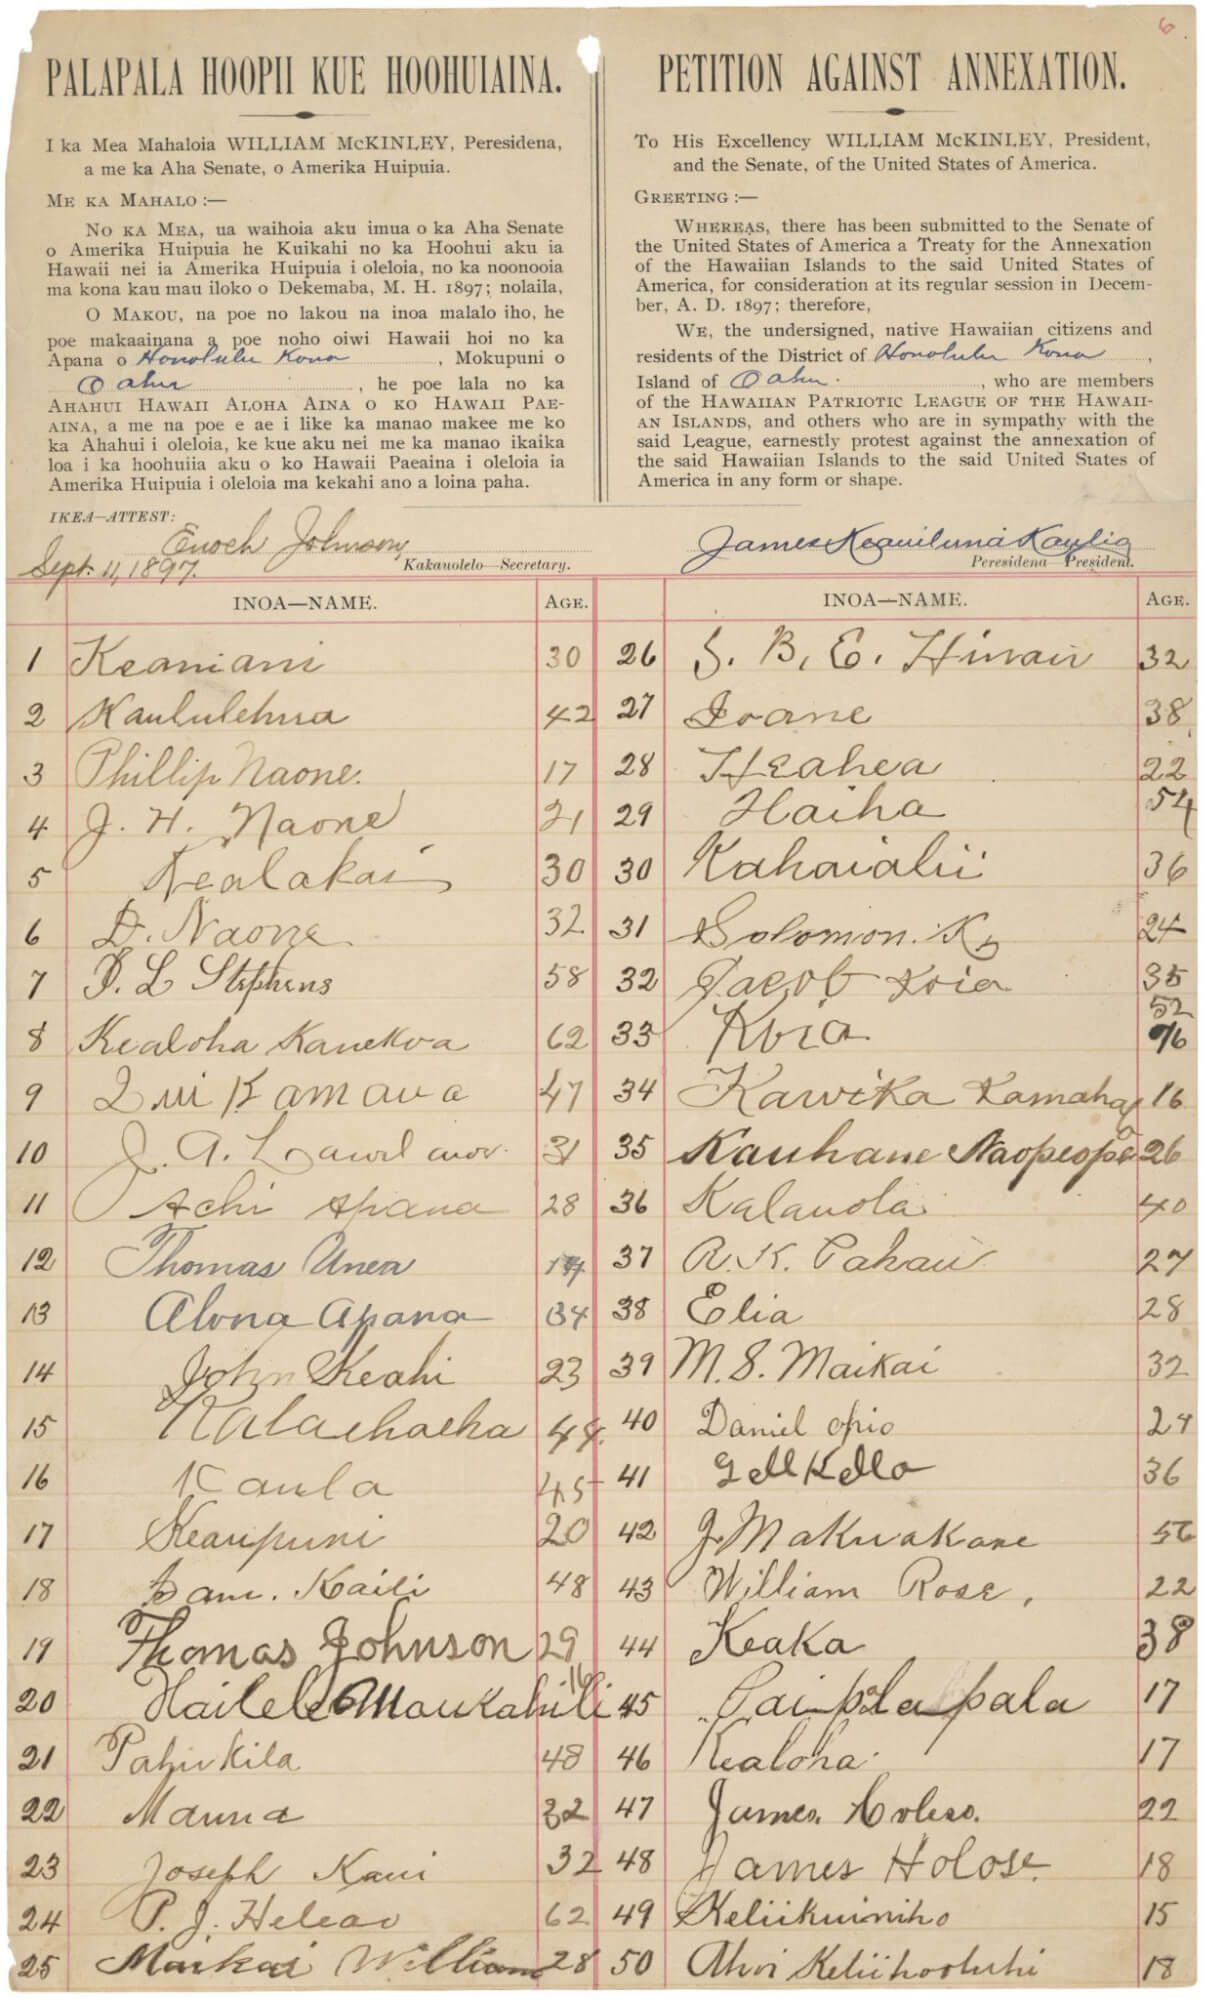 6
PALAPALA HOOPII KUE HOOHUIAINA.
I ka Mea Mahaloia WILLIAM McKINLEY, Peresidena,
a me ka Aha Senate, o Amerika Huipuia.
ME KA MAHALO :—
NO KA MEA, ua waihoia aku imua o ka Aha Senate
o Amerika Huipuia he Kuikahi no ka Hoohui aku ia
Hawaii nei ia Amerika Huipuia i oleloia, no ka noonooia
ma kona kau mau iloko o Dekemaba, M. H. 1897; nolaila,
O MAKOU, na poe no lakou na inoa malalo iho, he
poe makaainana a poe noho oiwi Hawaii hoi no ka
Apana o Honolulu Kona, Mokupuni o
Oahu, he poe lala no ka
AHAHUI HAWAII ALOHA AINA O KO HAWAII PAE-
AINA, a me na poe e ae i like ka manao makee me ko
ka Ahahui i oleloia, ke kue aku nei me ka manao ikaika
loa i ka hoohuiia aku o ko Hawaii Paeaina i oleloia ia
Amerika Huipuia i oleloia ma kekahi ano a loina paha.
IKEA—ATTEST:
Enoch Johnson
Sept. 11, 1897.
Kakauolelo—Secretary.
PETITION AGAINST ANNEXATION.
To His Excellency WILLIAM McKINLEY, President,
and the Senate, of the United States of America.
GREETING :—
WHEREAS, there has been submitted to the Senate of
the United States of America a Treaty for the Annexation
of the Hawaiian Islands to the said United States of
America, for consideration at its regular session in Decem-
ber, A. D. 1897; therefore,
WE, the undersigned, native Hawaiian citizens and
residents of the District of Honolulu Kona,
Island of Oahu., who are members
of the HAWAIIAN PATRIOTIC LEAGUE OF THE HAWAII-
AN ISLANDS, and others who are in sympathy with the
said League, earnestly protest against the annexation of
the said Hawaiian Islands to the said United States of
America in any form or shape.
James Keauiluna Kaulia
Peresidena—President.
INOA—NAME. AGE.
1 Keaniani 30
2 Kaululehua 42
3 Phillip Naone. 17
4 J. H. Naone 21
5 Kealakai 30
6 D. Naone 32
7 D. L Stephens 58
8 Kealoha Kanekoa 62
9 Lui Kamaua 47
10 J. A. 31
11 Achi Apana 28
12 Thomas Unea
13 Alona Apana 34
14 John Keahi 23
15 Kalaehaeha
16 Kaula 45
17 Keaupuni 20
18 Sam. Kaili 48
19 Thomas Johnson 29
20 Hailele Maukahili 16
21 Pahukila 48
22 Manna 32
23 Joseph Kaui 32
24 P. J. Heleao 62
25 Maikai William 28
INOA—NAME. AGE.
26 S. B. E. 32
27 Ioane 38
28 Heahea 22
29 Haiha 54
30 Kahaialii 36
31 Solomon. K 24
32 Jacob Koia 35
52
33 Koia 76
34 Kawika 16
35 Kauhane Naopeope 26
36 Kalauola 40
37 R. K. Pahau 27
38 Elia 28
39 M. S. Maikai 32
40 Daniel opio 24
41 Kello 36
42 J. Makuakane 56
43 William Rose, 22
44 Keaka 38
45 17
46 Kealoha 17
47 James. 22
48 James Holose. 18
49 Keliikuiniho 15
50 Ahoi Keliihooluhi 18